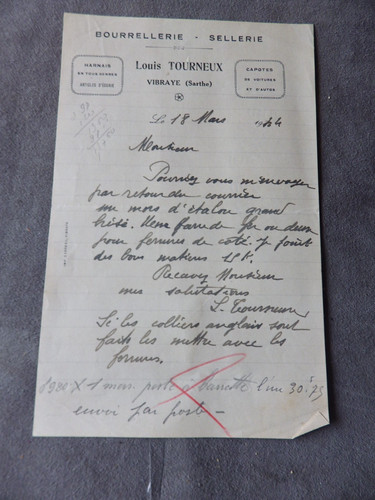 BOURRELLERIE - SELLERIE
HARNAIS
EN TOUS GENRES
ARTICLES D'ÉCURIE
Louis TOURNEUX
VIBRAYE (Sarthe)
CAPOTES
DE VOITURES
ET D'AUTOS
Le 18 Mars 1944
Monsieur
Pourriez vous m'envoyer
par retour du courrier
un mors d'étalon grand
ou deux
pour ferrures de côté. Je
des bons matières
Recevez Monsieur
mes salutations
L. Tourneux
Si les colliers anglais sont
faits les mettre avec les
ferrures.
1 mors l'un 30.75
envoi par poste -